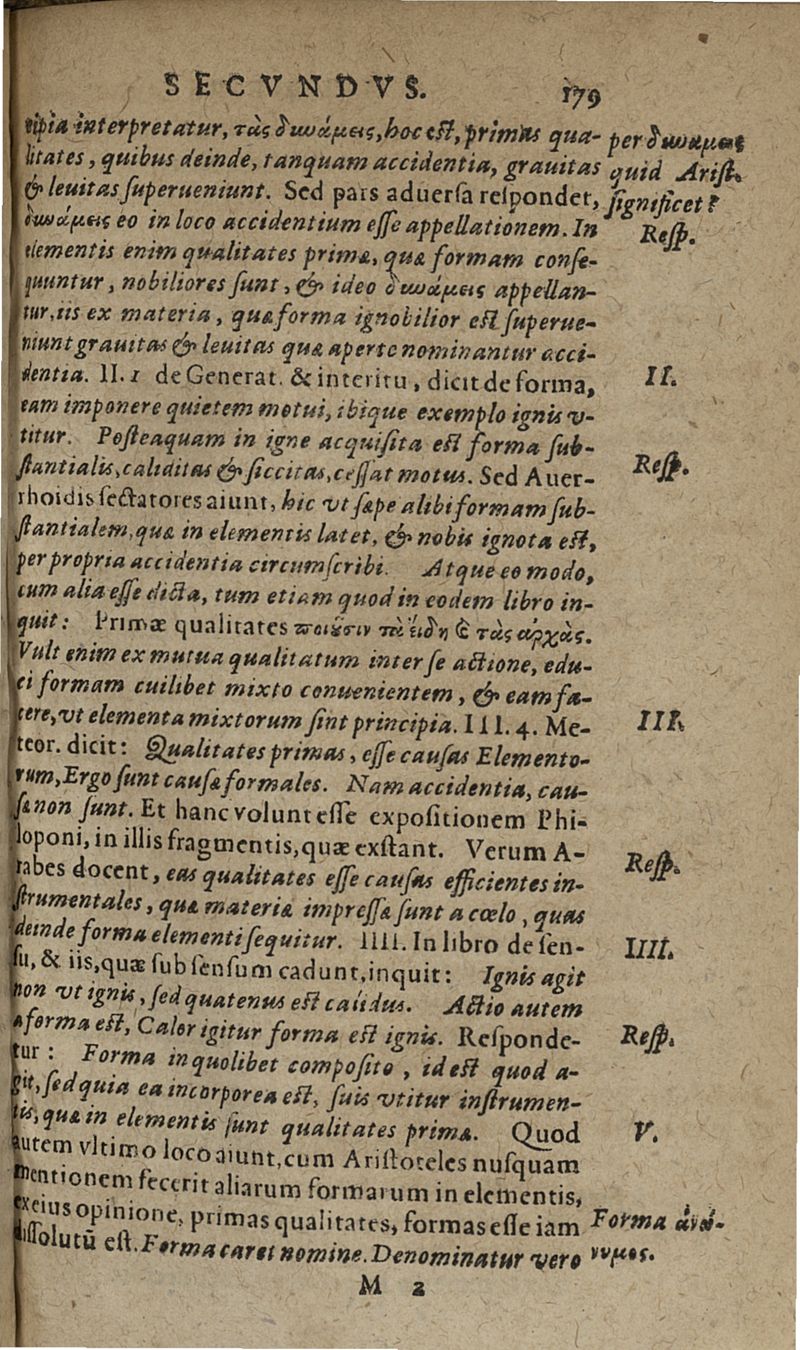 SECVNDVS. 179
cipia interpretatur, τὰς δυνάμεις, hoc est, primas qua-
litates, quibus deinde, tanquam accidentia, grauitas
& leuitas superueniunt. Sed pars aduersa respondet,
δυνάμεις eo in loco accidentium esse appellationem. In
elementis enim qualitates primæ, quæ formam conse-
quuntur, nobiliores sunt, & ideo δυνάμεις appellan-
tur, iis ex materia, quæ forma ignobilior est superue-
niunt grauitas & leuitas quæ aperte nominantur acci-
dentia. II. 1 de Generat. & interitu, dicit de forma,
eam imponere quietem motui, ibique exemplo ignis v-
titur. Posteaquam in igne acquisita est forma sub-
stantialis, caliditas & siccitas, cessat motus. Sed Auer-
rhoidis sectatores aiunt, hic vt sæpe alibi formam sub-
stantialem, quæ in elementis latet, & nobis ignota est,
per propria accidentia circumscribi. Atque eo modo,
cum alia esse dicta, tum etiam quod in eodem libro in-
quit: Primæ qualitates ποιοῦσιν τὰ εἴδη & τὰς ἀρχάς.
Vult enim ex mutua qualitatum inter se actione, edu-
ci formam cuilibet mixto conuenientem, & eam fa-
cere, vt elementa mixtorum sint principia. III. 4. Me-
teor. dicit: Qualitates primas, esse causas Elemento-
rum, Ergo sunt causæ formales. Nam accidentia, cau-
sæ non sunt. Et hanc volunt esse expositionem Phi-
loponi, in illis fragmentis, quæ exstant. Verum A-
rabes docent, eas qualitates esse causas efficientes in-
strumentales, quæ materiæ impressæ sunt a cœlo, quas
deinde forma elementi sequitur. IIII. In libro de sen-
su, & iis, quæ sub sensum cadunt, inquit: Ignis agit
non vt ignis, sed quatenus est calidus. Actio autem
a forma est, Calor igitur forma est ignis. Responde-
tur: Forma in quolibet composito, id est quod a-
git, sed quia ea incorporea est, suis vtitur instrumen-
tis, quæ in elementis sunt qualitates primæ. Quod
autem vltimo loco aiunt, cum Aristoteles nusquam
mentionem fecerit aliarum formarum in elementis,
ex eius opinione, primas qualitates, formas esse iam
dissolutū est. Forma caret nomine. Denominatur vero
M 2
per δυνάμεις
quid Arist.
significet?
Resp.
II.
Resp.
III.
Resp.
IIII.
Resp.
V.
Forma ἀνώ-
νυμος.